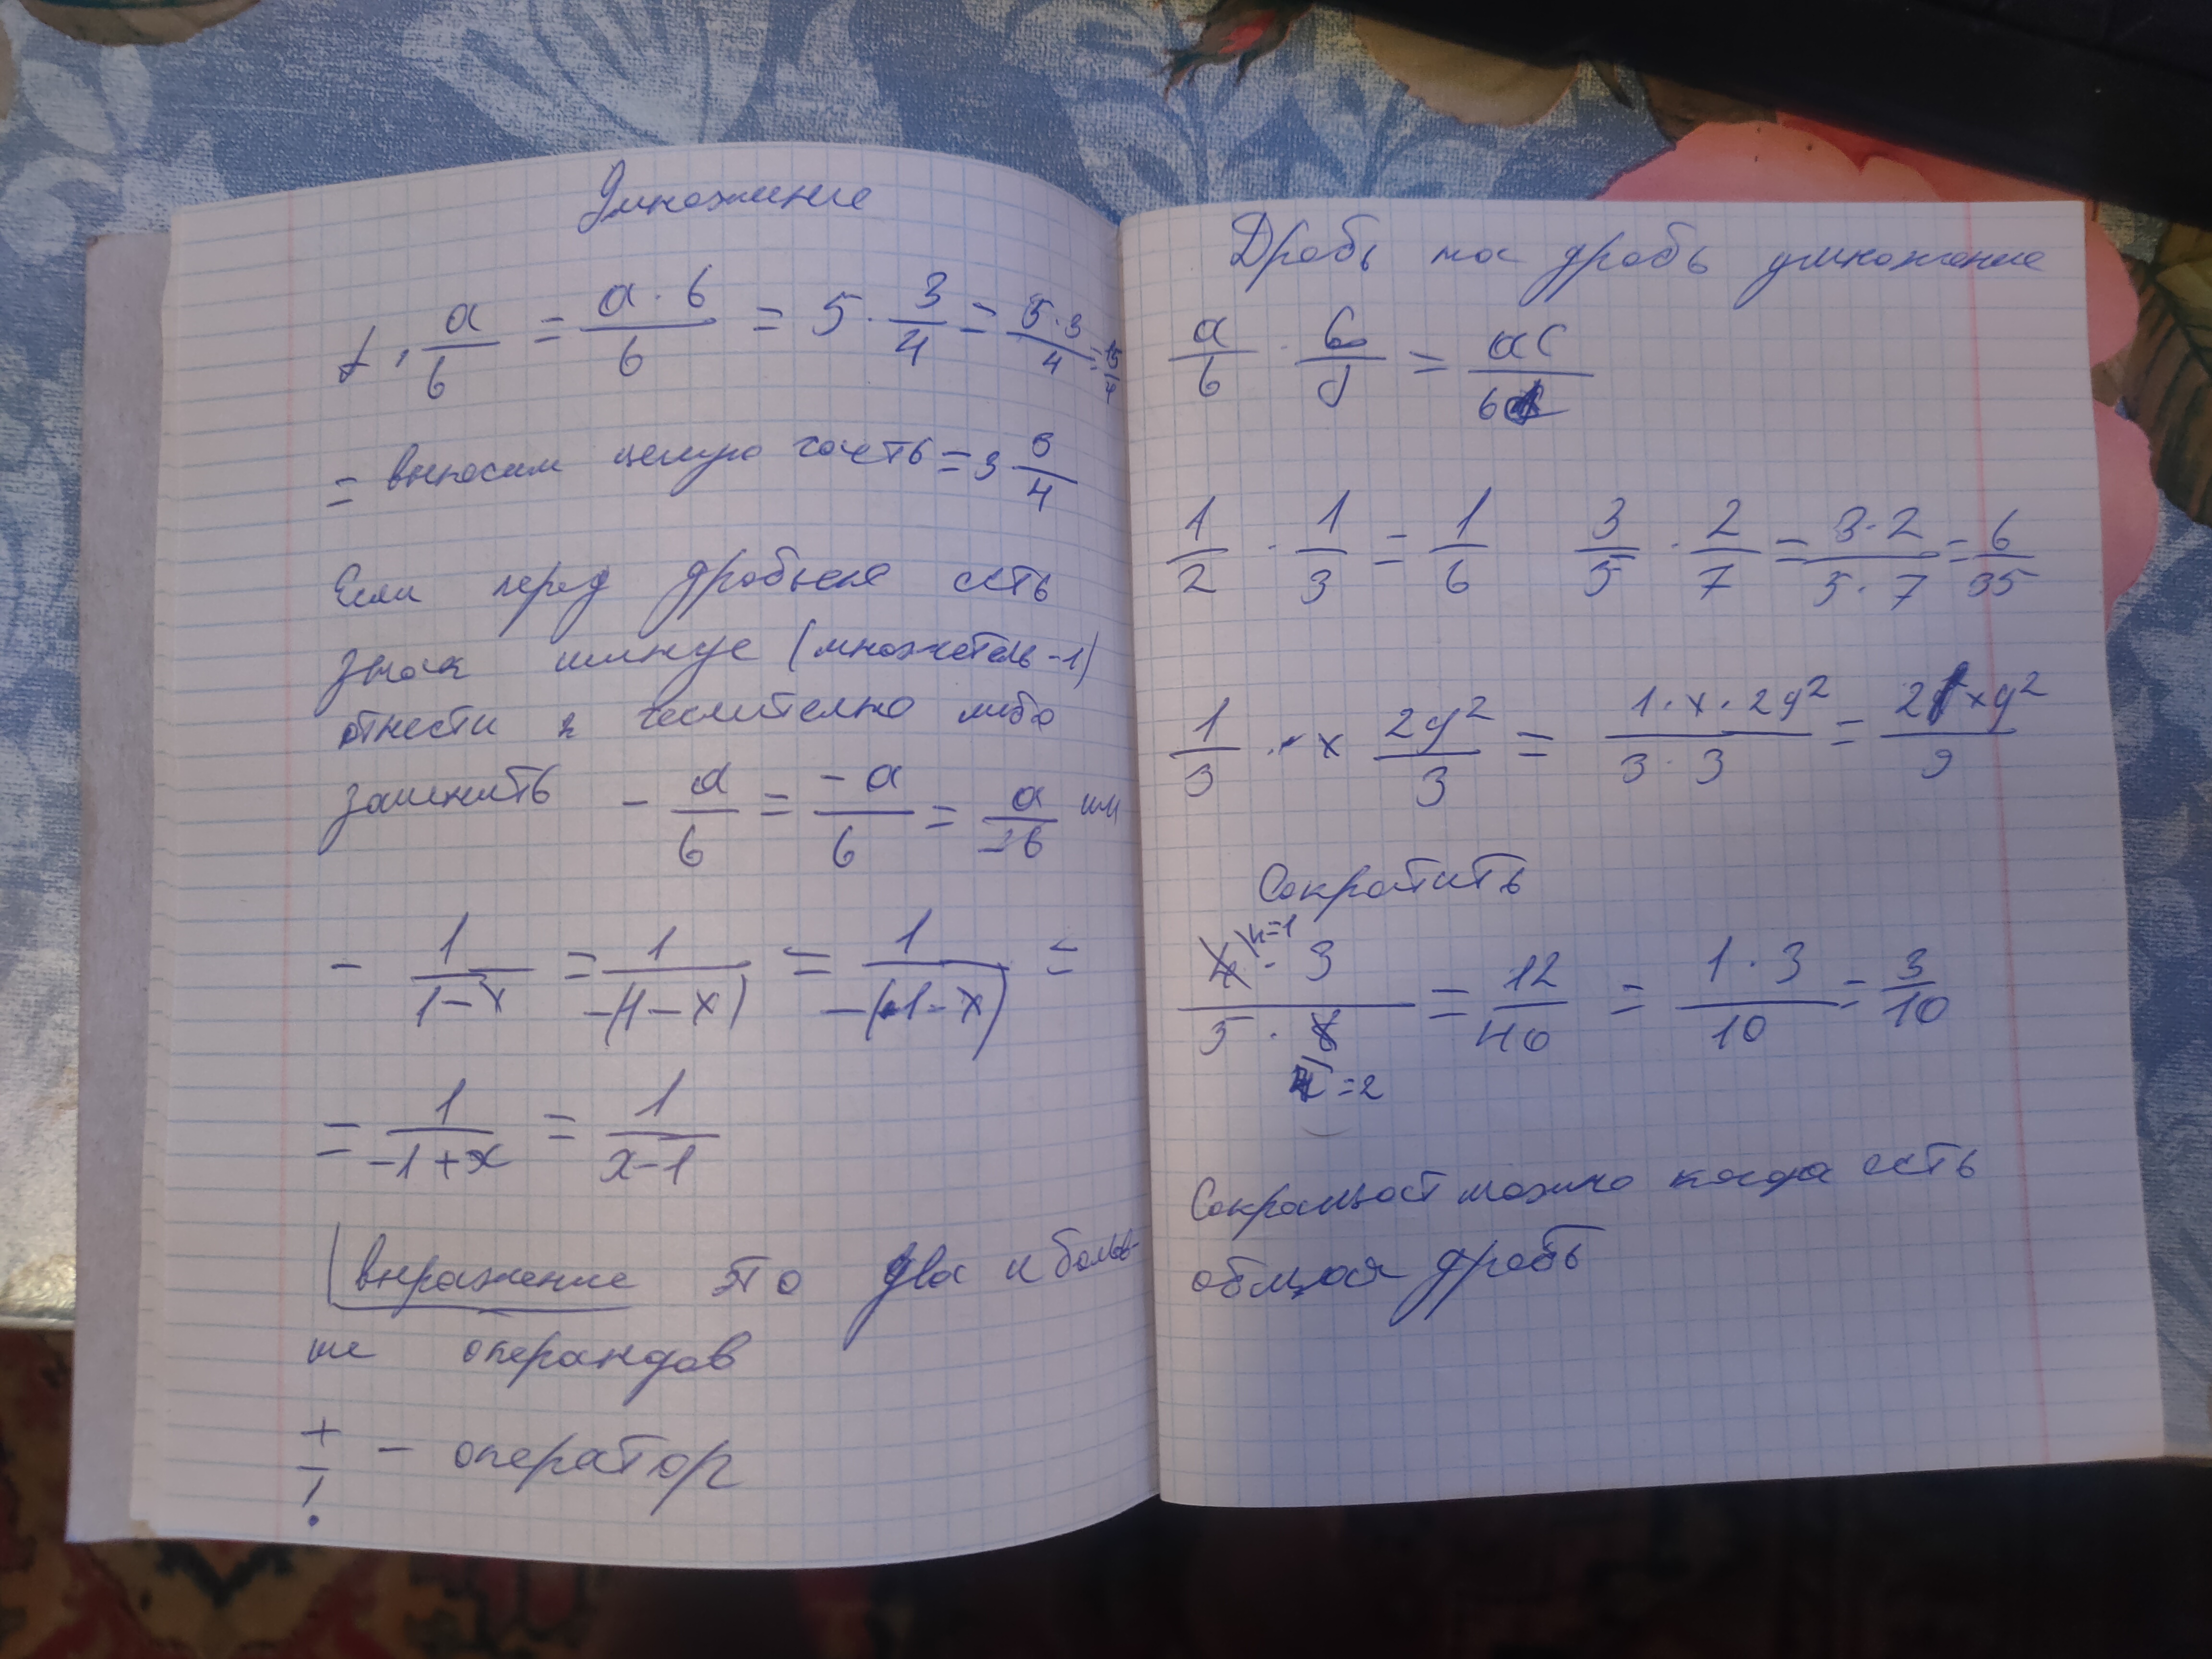 Умножение
f · a/b = a·b/b = 5 · 3/4 = 5·3/4 = 15/4
= выносим целую часть = 3 3/4
Если перед дробью есть
знак минус (множетель -1)
отнести к числителю либо
заменить - a/b = -a/b = a/-b или
- 1/1-x = 1/-(1-x) = 1/-(1-x) =
= 1/-1+x = 1/x-1
выражение это два и боль-
ше операндов
+
- - оператор
/
·
Дробь на дробь умножение
a/b · c/d = ac/bd
1/2 · 1/3 = 1/6 3/5 · 2/7 = 3·2/5·7 = 6/35
1/3 · x 2y²/3 = 1·x·2y²/3·3 = 2xy²/9
Сократить
4\4=1 · 3/5 · 8 = 12/40 = 1·3/10 = 3/10
4/ =2
Сокращат можно когда есть
общая дробь